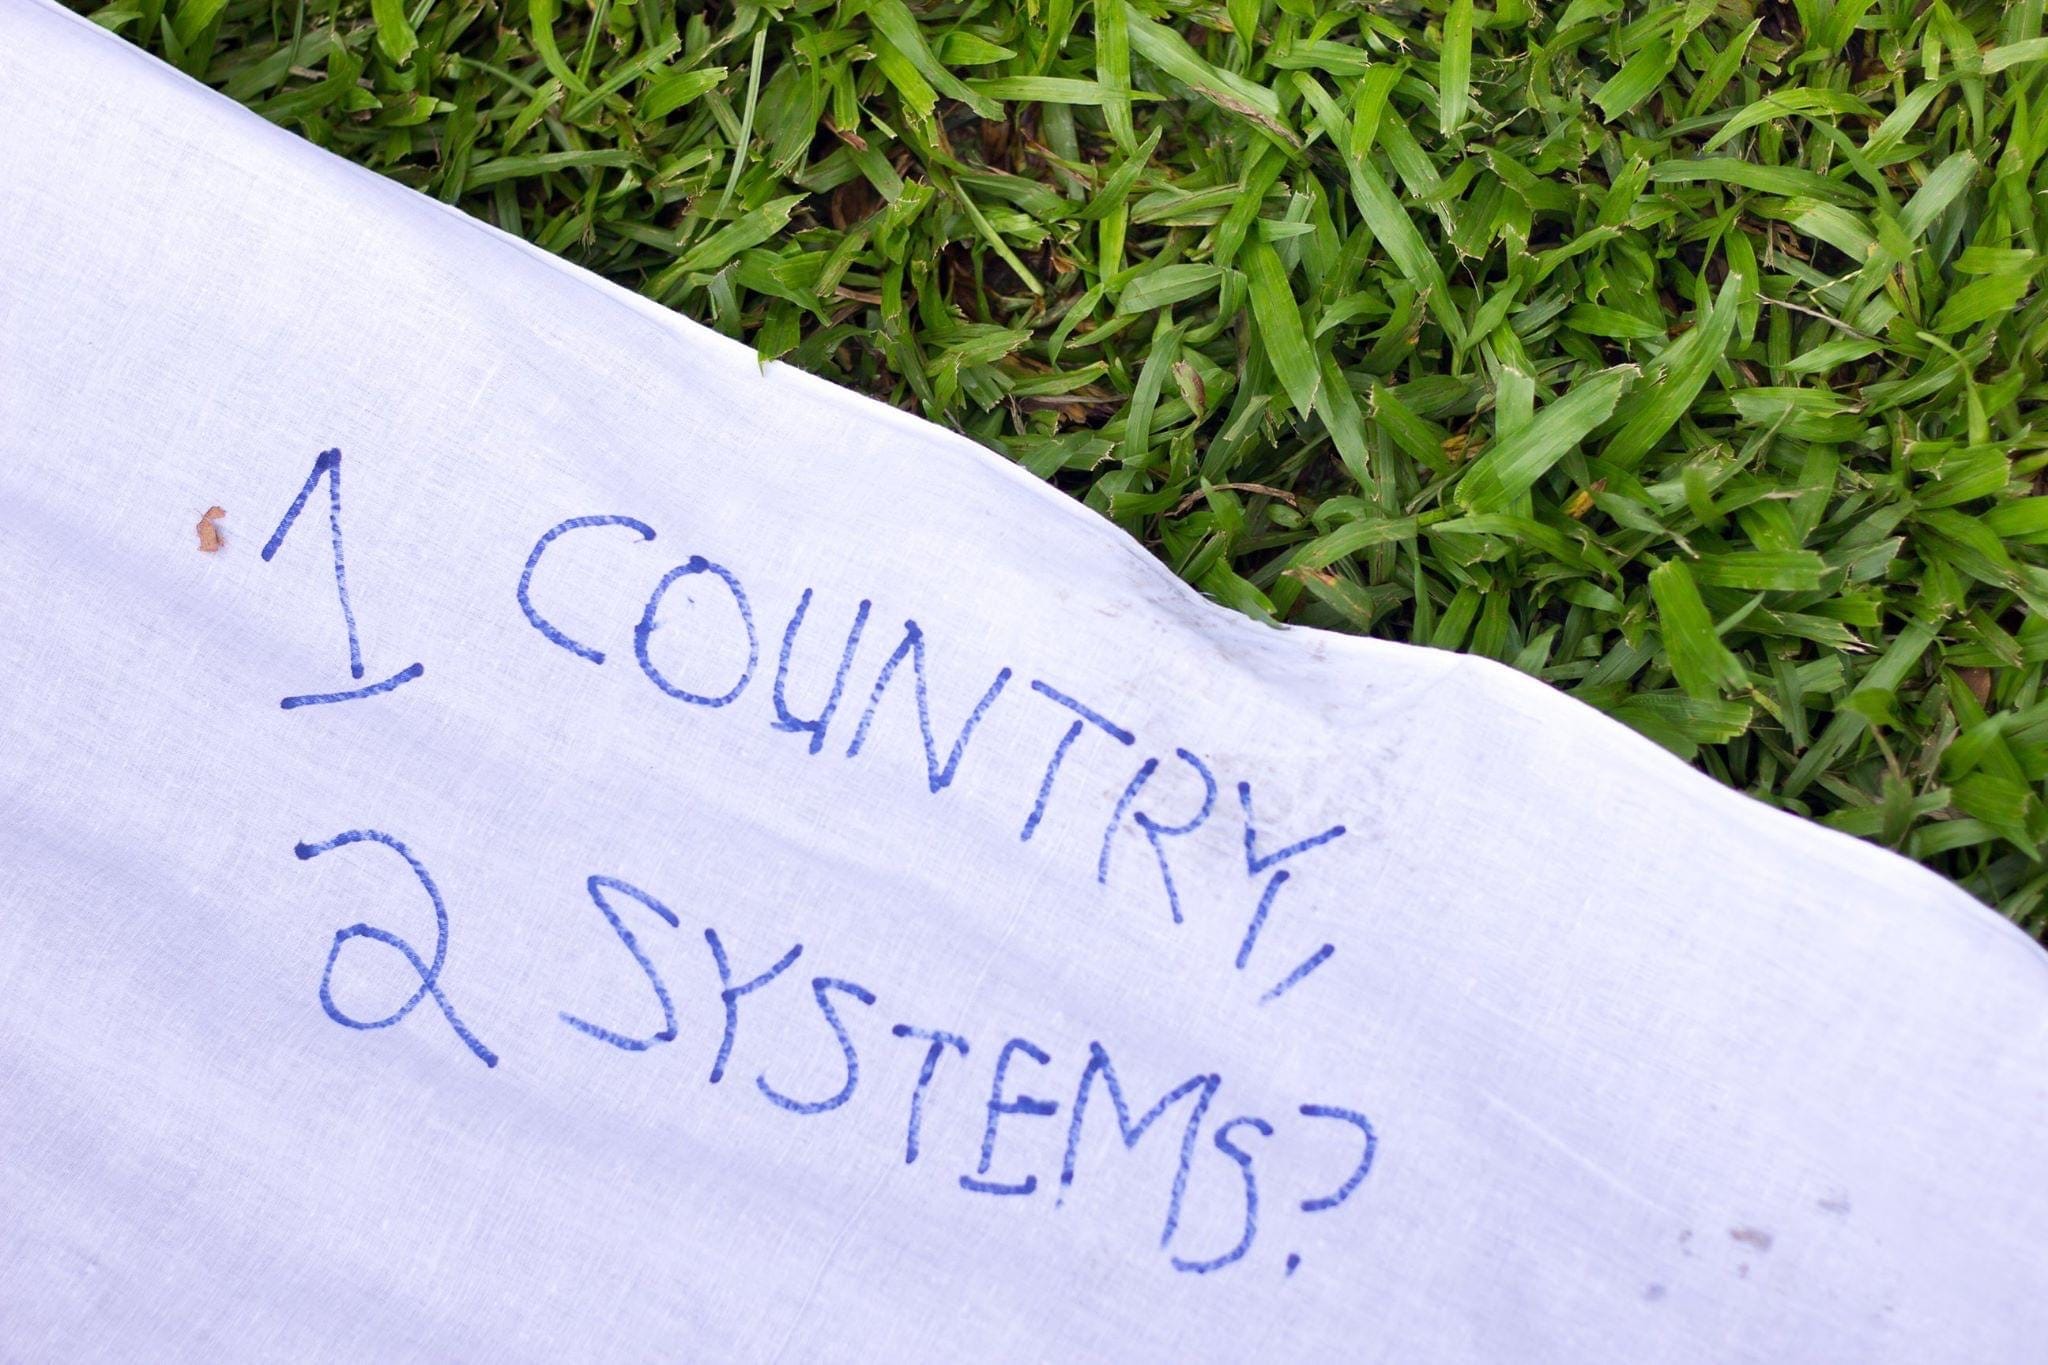 1 COUNTRY,
2 SYSTEMS?